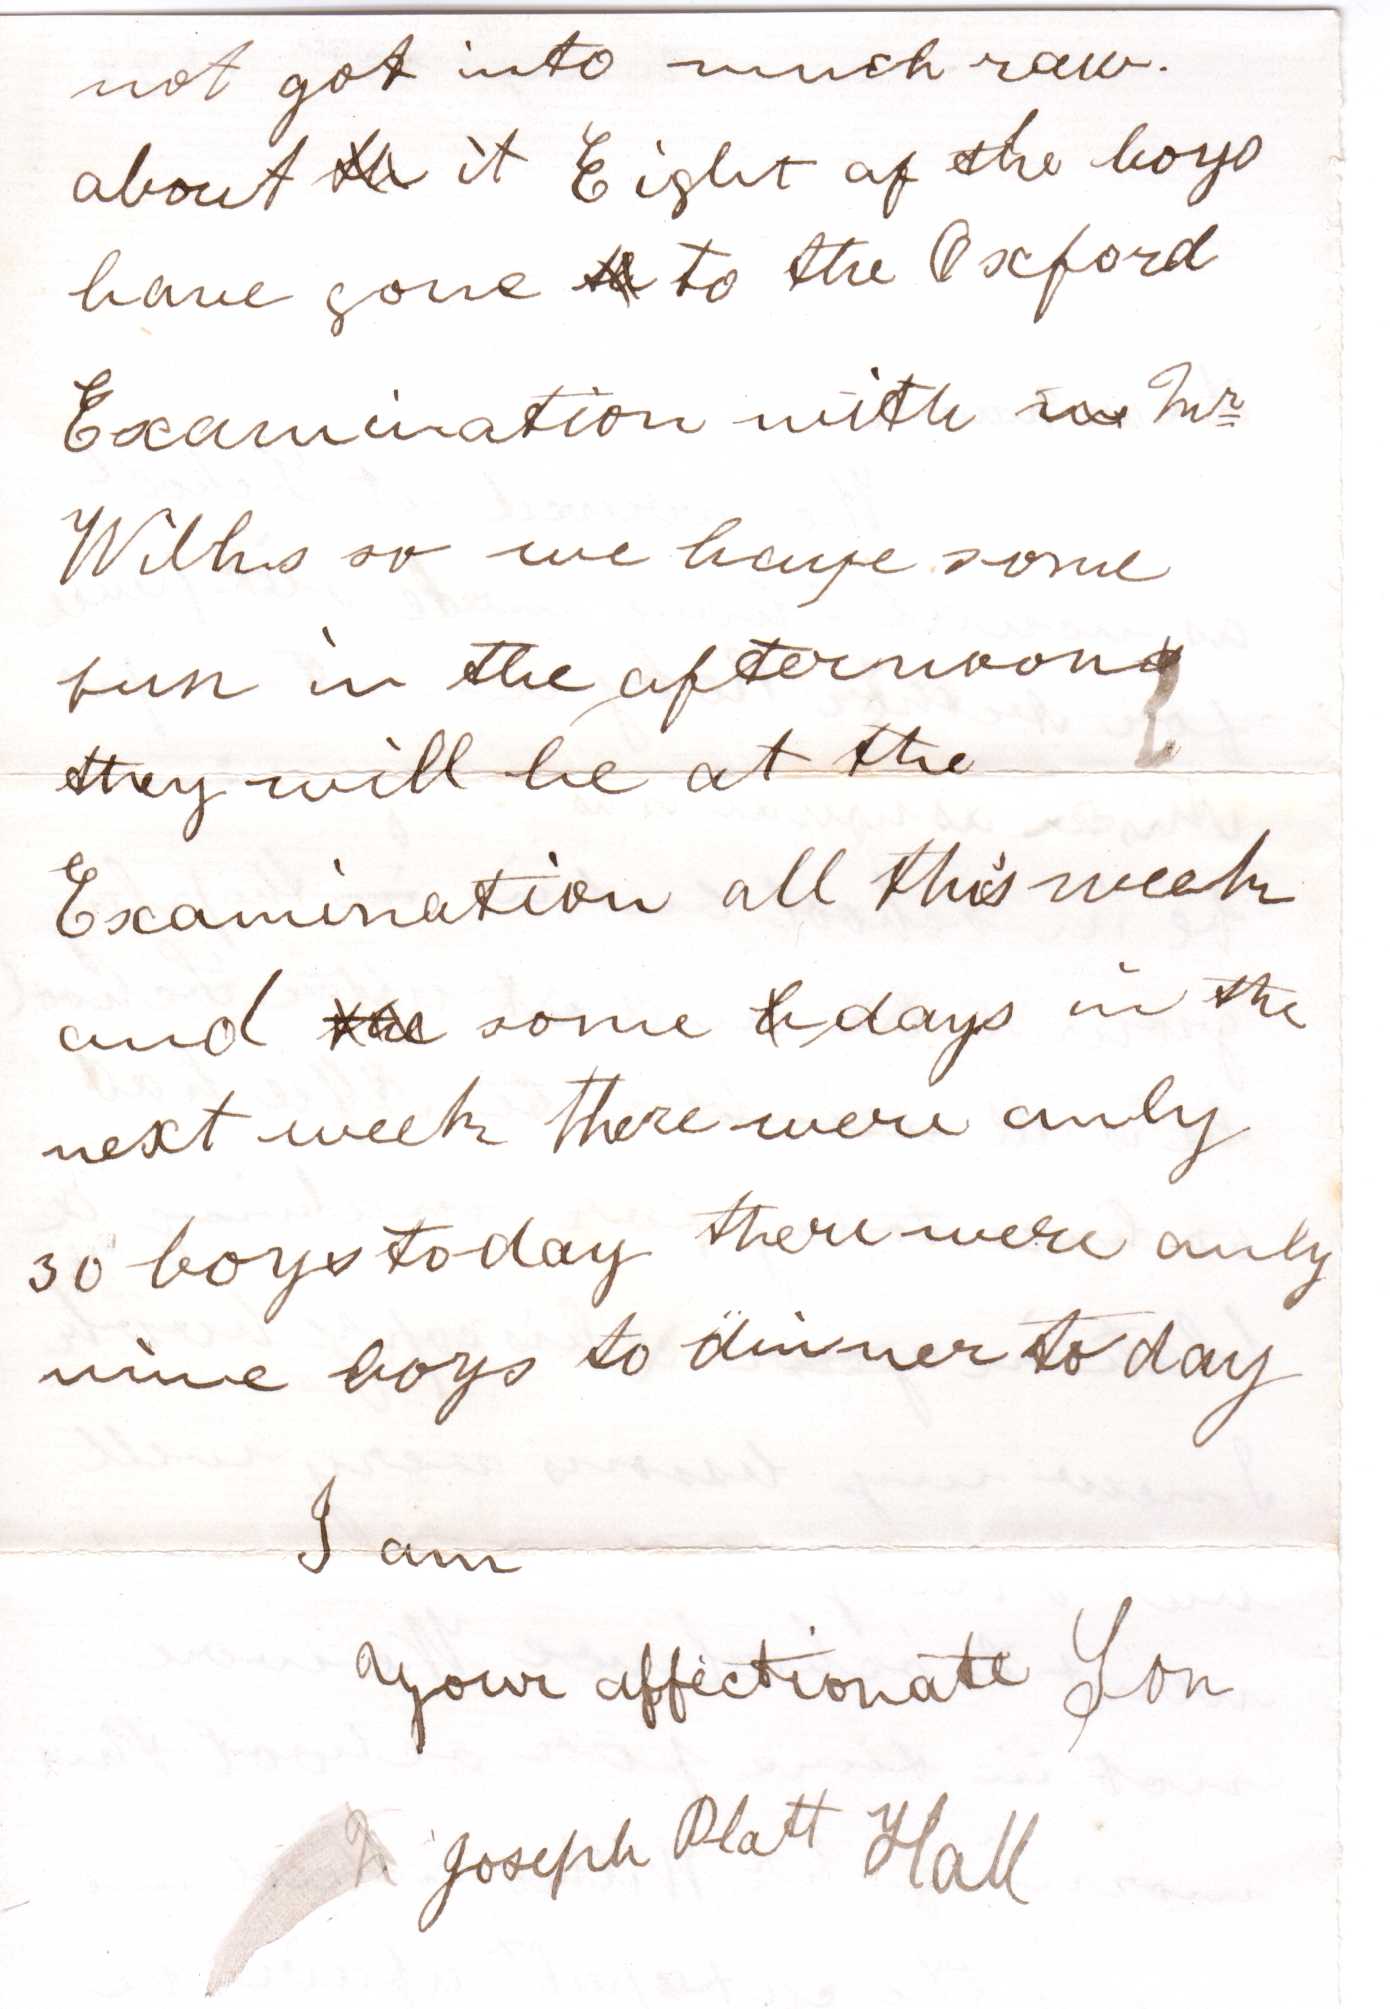 not got into much raw.
about it Eight of the boys
have gone to to the Oxford
Examination with Mr
so we have some
fun in the afternoon
they will be at the
Examination all this week
and the some days in the
next week there were only
30 boys today there were only
nine boys to dinner today
I am
Your affectionate Son
Joseph Platt Hall